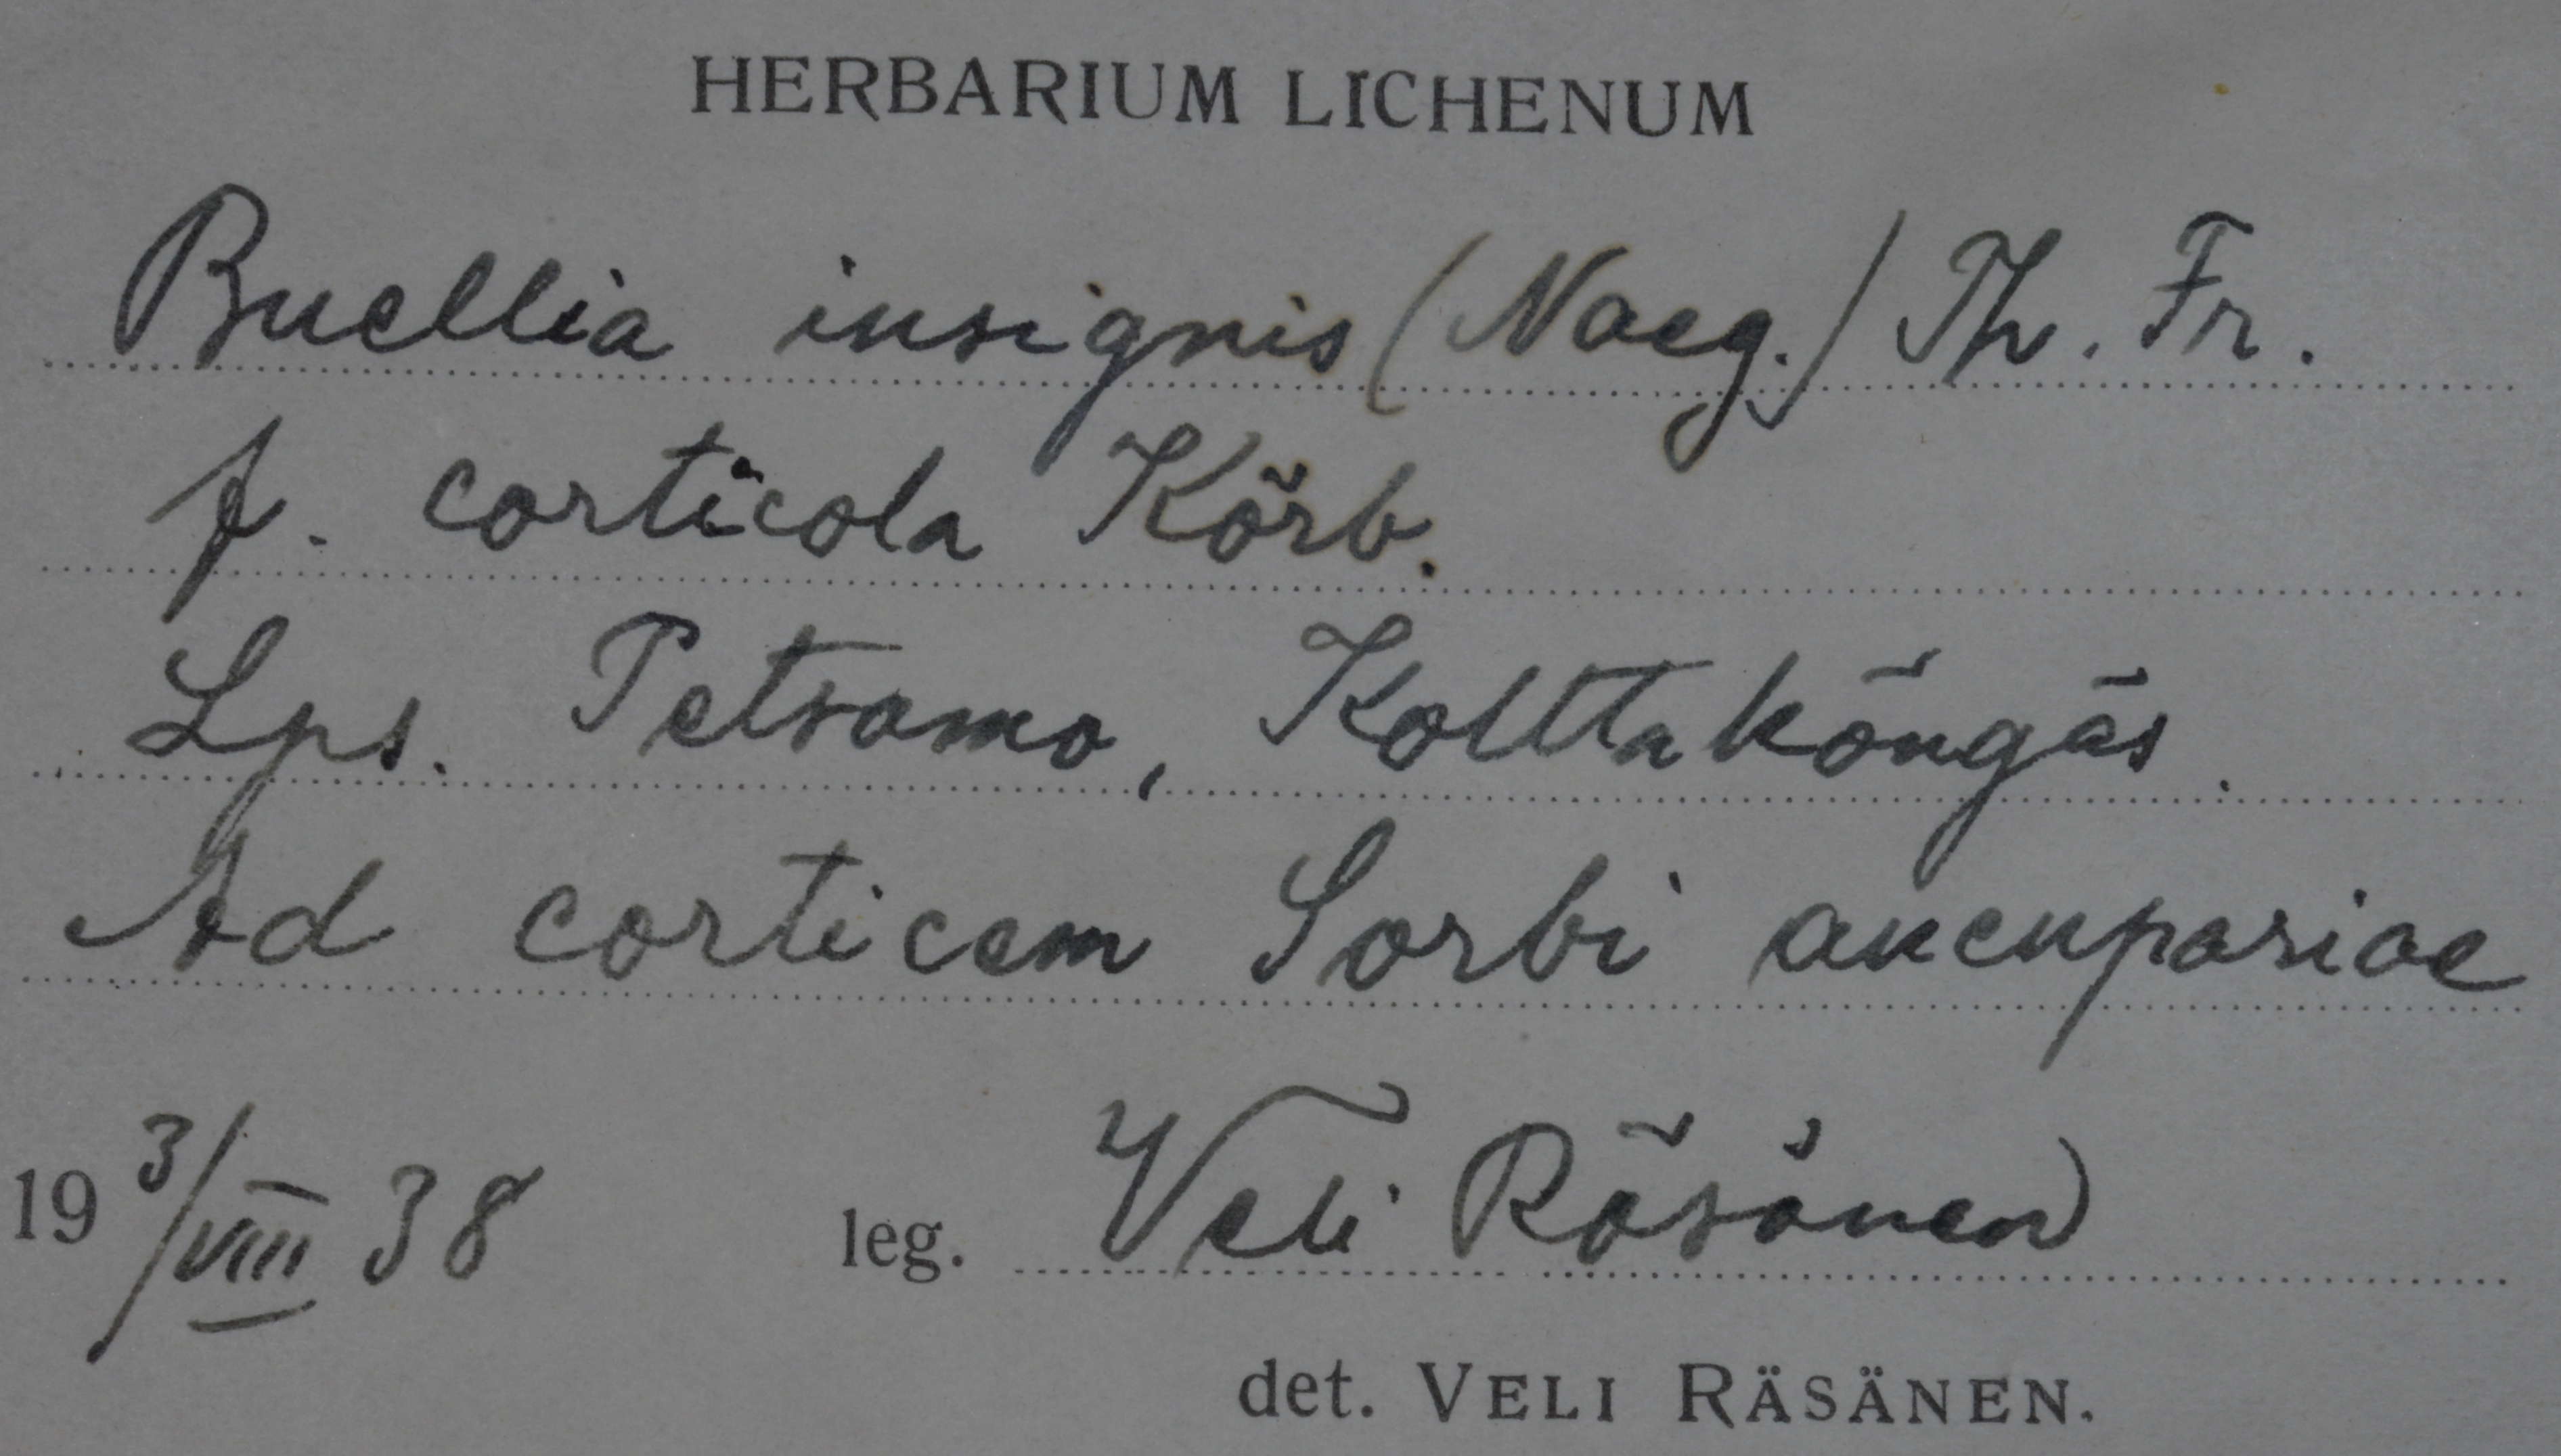 HERBARIUM LICHENUM
Buellia insignis (Naeg.) Th. Fr.
f. corticola Körb.
Lps. Petsamo, Kolttaköngäs.
Ad corticem Sorbi aucupariae
19 3/VIII 38 leg. Veli Räsänen
det. VELI RÄSÄNEN.